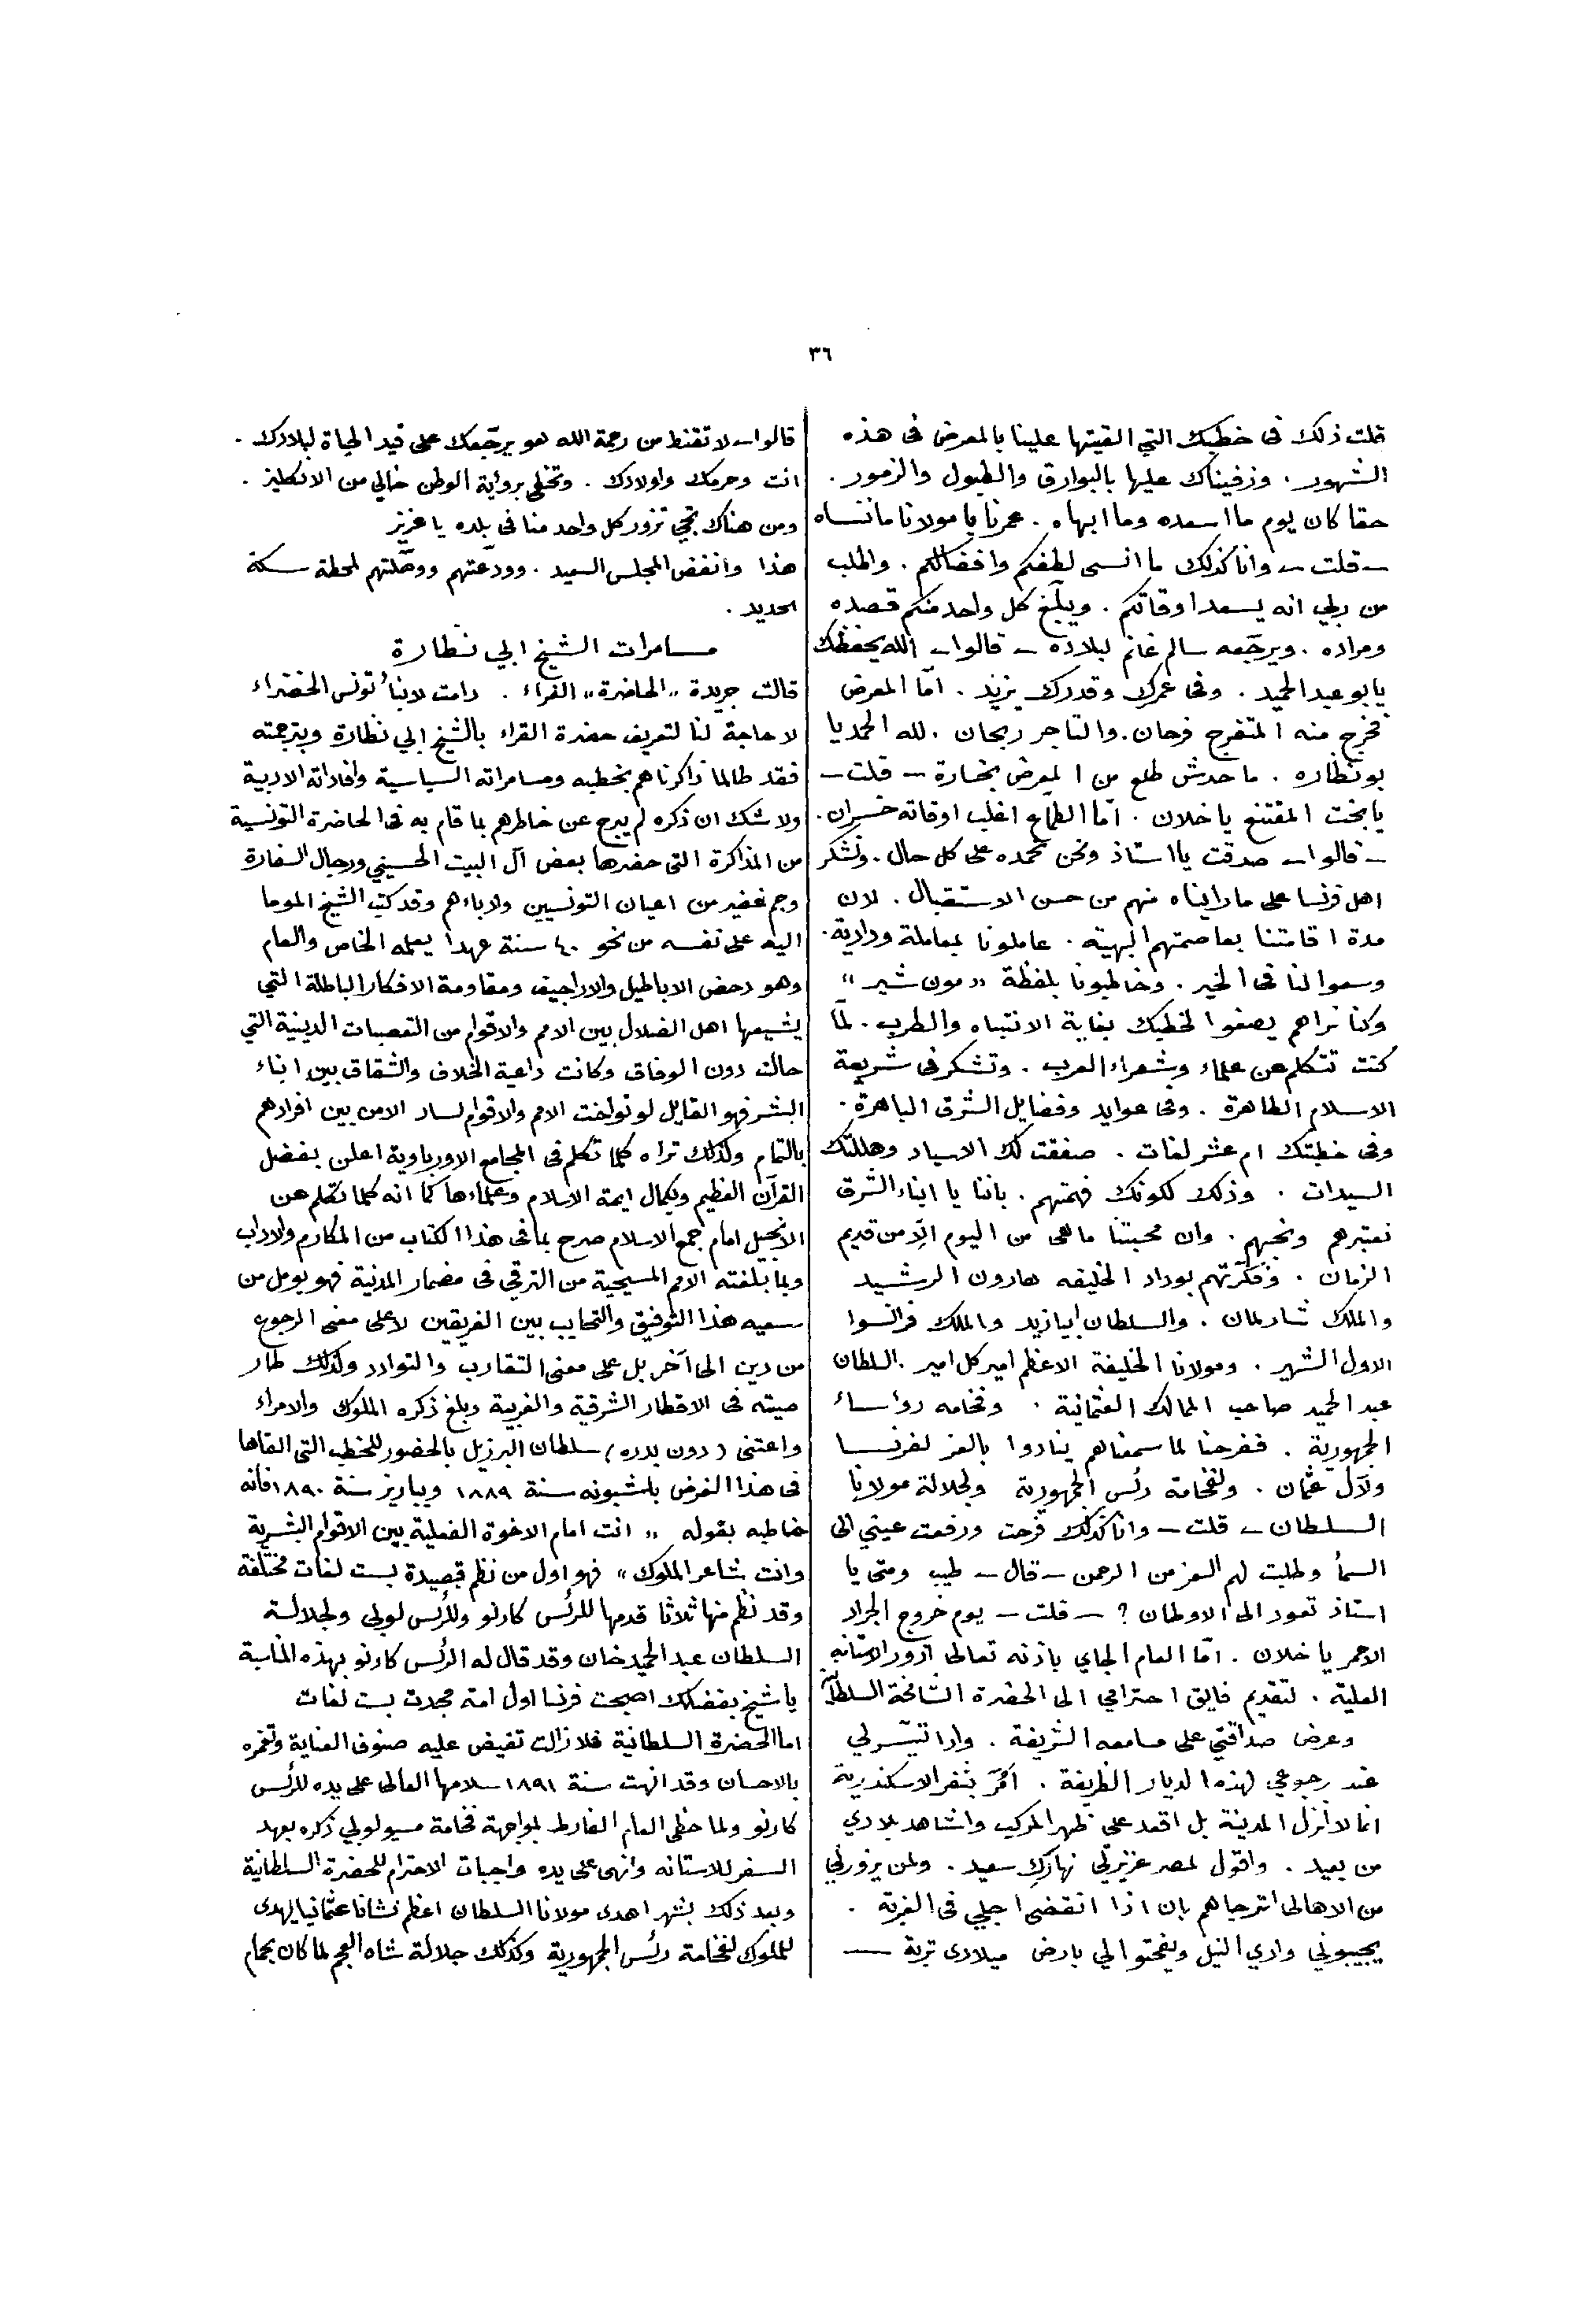 ٣٦
قلت ذلك فى خطبتك التي القيتها علينا بالمعرض فى هذه
الشهور . وزفيناك عليها بالبوارق والطبول والزمور .
حقا كان يوم ما اسعده وما ابهاه . عمرنا يا مولانا ما ننساه
— قلت — وانا كذلك ما انسى لطفكم وافضالكم . واطلب
من ربي انه يسعد اوقاتكم . ويبلّغ كل واحد منكم قصده
ومراده . ويرجّعه سالم غانم لبلاده — قالوا — الله يحفظك
يا بو عبد الحميد . وفى عمرك وقدرك يزيد . امّا المعرض
فخرج منه المتفرج فرحان . والتاجر ربحان . لله الحمد يا
بو نظاره . ما حدش طلع من المعرض بخسارة — قلت —
يا بخت المقتنع يا خلان . امّا الطمّاع اغلب اوقاته خسران .
— قالوا — صدقت يا استاذ ونحن نحمده على كل حال . ونشكر
اهل فرنسا على ما رايناه منهم من حسن الاستقبال . لان
مدة اقامتنا بعاصمتهم البهيّه . عاملونا بمعاملة ودادية .
وسعوا لنا فى الخير . وخاطبونا بلفظة « مون شير »
وكنا نراهم يصغوا لخطبك بغاية الانتباه والطرب . لمّا
كنت تتكلم عن علماء وشعراء العرب . وتشكر فى شريعة
الاسلام الطاهرة . وفى عوايد وفضايل الشرق الباهرة .
وفى خطبتك ام عشر لغات . صفقت لك الاسياد وهللتك
السيدات . وذلك لكونك فهمتهم . باننا يا ابناء الشرق
نعتبرهم ونحبهم . وان محبتنا ما هى من اليوم الّا من قديم
الزمان . وفكّرتهم بوداد الخليفه هارون الرشيد
والملك شارلمان . والسلطان بيازيد والملك فرانسوا
الاول الشهير . ومولانا الخليفة الاعظم امير كل امير . السلطان
عبد الحميد صاحب الممالك العثمانية . وفخامه رؤساء
الجمهورية . ففرحنا لما سمعناهم ينادوا بالعز لفرنسا
ولآل عثمان . ولفخامة رئس الجمهورية ولجلالة مولانا
السلطان — قلت — وانا كذلك فرحت ورفعت عيني الى
السمأ وطلبت لهم العز من الرحمن — قال — طيب ومتى يا
استاذ تعود الى الاوطان ؟ — قلت — يوم خروج الجراد
الاحمر يا خلان . امّا العام الجاي باذنه تعالى ازور الاستانه
العليّه . لتقديم فايق احترامي الى الحضرة الشامخة السلطانيّه
وعرض صداقتي على مسامعه الشريفة . واذا تيسّر لي
عند رجوعي لهذه الديار الظريفة . امُرّ بثغر الاسكندرية
انما لا انزل المدينة بل اقعد على ظهر المركب واشاهد بلادي
من بعيد . واقول لمصر عزيزتي نهارك سعيد . ولمن يزورني
من الاهالى اترجاهم بان اذا انقضى اجلي فى الغربة .
يجيبوني وادي النيل ويفحتوا لي بارض ميلادى تربة —
قالوا — لا تقنط من رحمة الله هو يرجّعك على قيد الحياة لبلادك .
انت وحرمك واولادك . وتحظى برؤية الوطن خالي من الانكليز .
ومن هناك تجي تزور كل واحد منا فى بلده يا عزيز
هذا وانفض المجلس السعيد . وودّعتهم ووصّلتهم لمحطة سكة
الحديد .
مسامرات الشيخ ابي نظارة
قالت جريدة « الحاضرة » الغراء . دامت لابناء تونس الخضراء
لا حاجة لنا لتعريف حضرة القراء بالشيخ ابي نظارة وبترجمته
فقد طالما ذاكرناهم بخطبه ومسامراته السياسية وافاداته الادبية
ولا شك ان ذكره لم يبرح عن خاطرهم بما قام به فى الحاضرة التونسية
من المذاكرة التى حضرها بعض آل البيت الحسيني ورجال السفارة
وجم غفير من اعيان التونسيين وادباءهم وقد كتب الشيخ الموما
اليه على نفسه من نحو ٤٠ سنة عهدا يعلمه الخاص والعام
وهو دحض الاباطيل والاراجيف ومقاومة الافكار الباطلة التي
يشيعها اهل الضلال بين الامم والاقوام من التعصبات الدينية التي
حالت دون الوفاق وكانت داعية الخلاف والشقاق بين ابناء
البشر فهو القايل لو تواخت الامم والاقوام لساد الامن بين افرادهم
بالتمام ولذلك تراه كلما تكلم فى المجامع الاورباوية اعلن بفضل
القرآن العظيم وبكمال ايمة الاسلام وعلماءها كما انه كلما تكلم عن
الانجيل امام جمع الاسلام صرح بما فى هذا الكتاب من المكارم والاداب
وبما بلغته الامم المسيحية من الترقي فى مضمار المدنية فهو يومل من
سعيه هذا التوفيق والتحابب بين الفريقين لا على معنى الرجوع
من دين الى آخر بل على معنى التقارب والتوادد ولذلك طار
صيته فى الاقطار الشرقية والغربية وبلغ ذكره الملوك والامراء
واعتنى ( دون بدره ) سلطان البرزيل بالحضور للخطب التى القاها
فى هذا الغرض بلشبونه سنة ١٨٨٩ وبباريز سنة ١٨٩٠ فانه
خاطبه بقوله « انت امام الاخوة الفعلية بين الاقوام البشرية
وانت شاعر الملوك » فهو اول من نظم قصيدة بست لغات مختلفة
وقد نظم منها ثلاثا قدمها للرئس كارنو وللرئس لوبي ولجلالة
السلطان عبد الحميد خان وقد قال له الرئس كارنو بهذه المناسبة
يا شيخ بفضلك اصبحت فرنسا اول امة مجدت بست لغات
اما الحضرة السلطانية فلا زالت تفيض عليه صنوف العناية وتغمره
بالاحسان وقد انهت سنة ١٨٩١ سلامها العالى على يده للرئس
كارنو ولما حظى العام الفارط بمواجهة فخامة مسيو لوبي ذكره بعهد
السفر للاستانه وانهى على يده واجبات الاحترام للحضرة السلطانية
وبعد ذلك بشهر اهدى مولانا السلطان اعظم نشانا عثمانيا يهدى
للملوك لفخامة رئس الجمهورية وكذلك جلالة شاه العجم لما كان بحمام